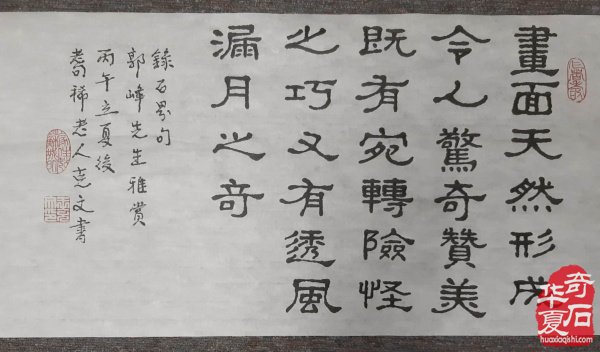 畫面天然形成
令人驚奇贊美
既有宛轉險怪
之巧又有透風
漏月之奇
錄石界句
郭峰先生雅賞
丙午立夏後
稀老人文書
华夏
奇石
huaxiaqishi.com